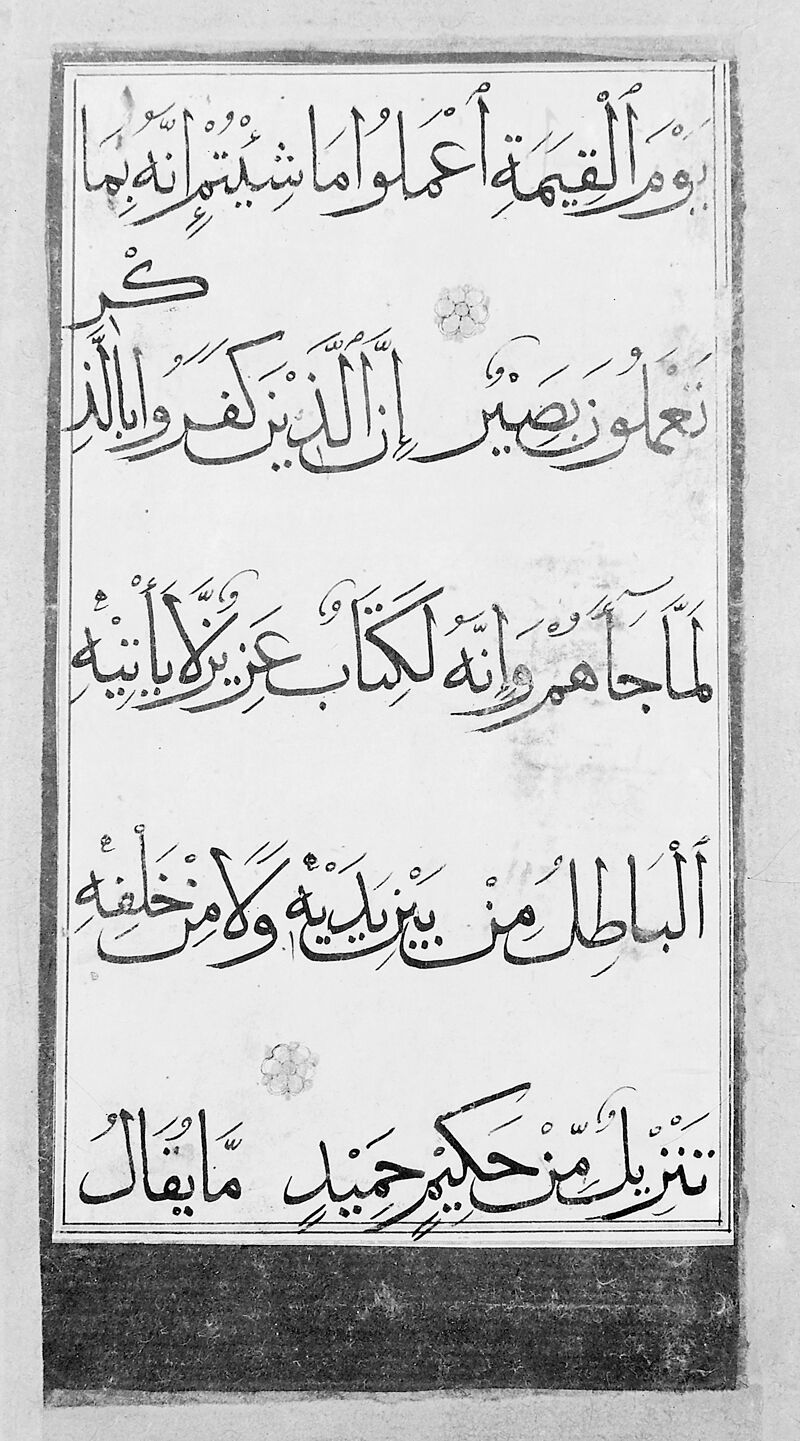 يَوْمَ ٱلْقِيَمَةِ ٱعْمَلُوا مَا شِئْتُمْ إِنَّهُ بِمَا
تَعْمَلُونَ بَصِيْرٌ إِنَّ ٱلَّذِيْنَ كَفَرُوا بِالذِّكْرِ
لَمَّا جَآءَهُمْ وَإِنَّهُ لَكِتَابٌ عَزِيزٌ لَا يَأْتِيْهِ
ٱلْبَاطِلُ مِنْ بَيْنِ يَدَيْهِ وَلَا مِنْ خَلْفِهِ
تَنْزِيلٌ مِّنْ حَكِيْمٍ حَمِيْدٍ مَّا يُقَالُ